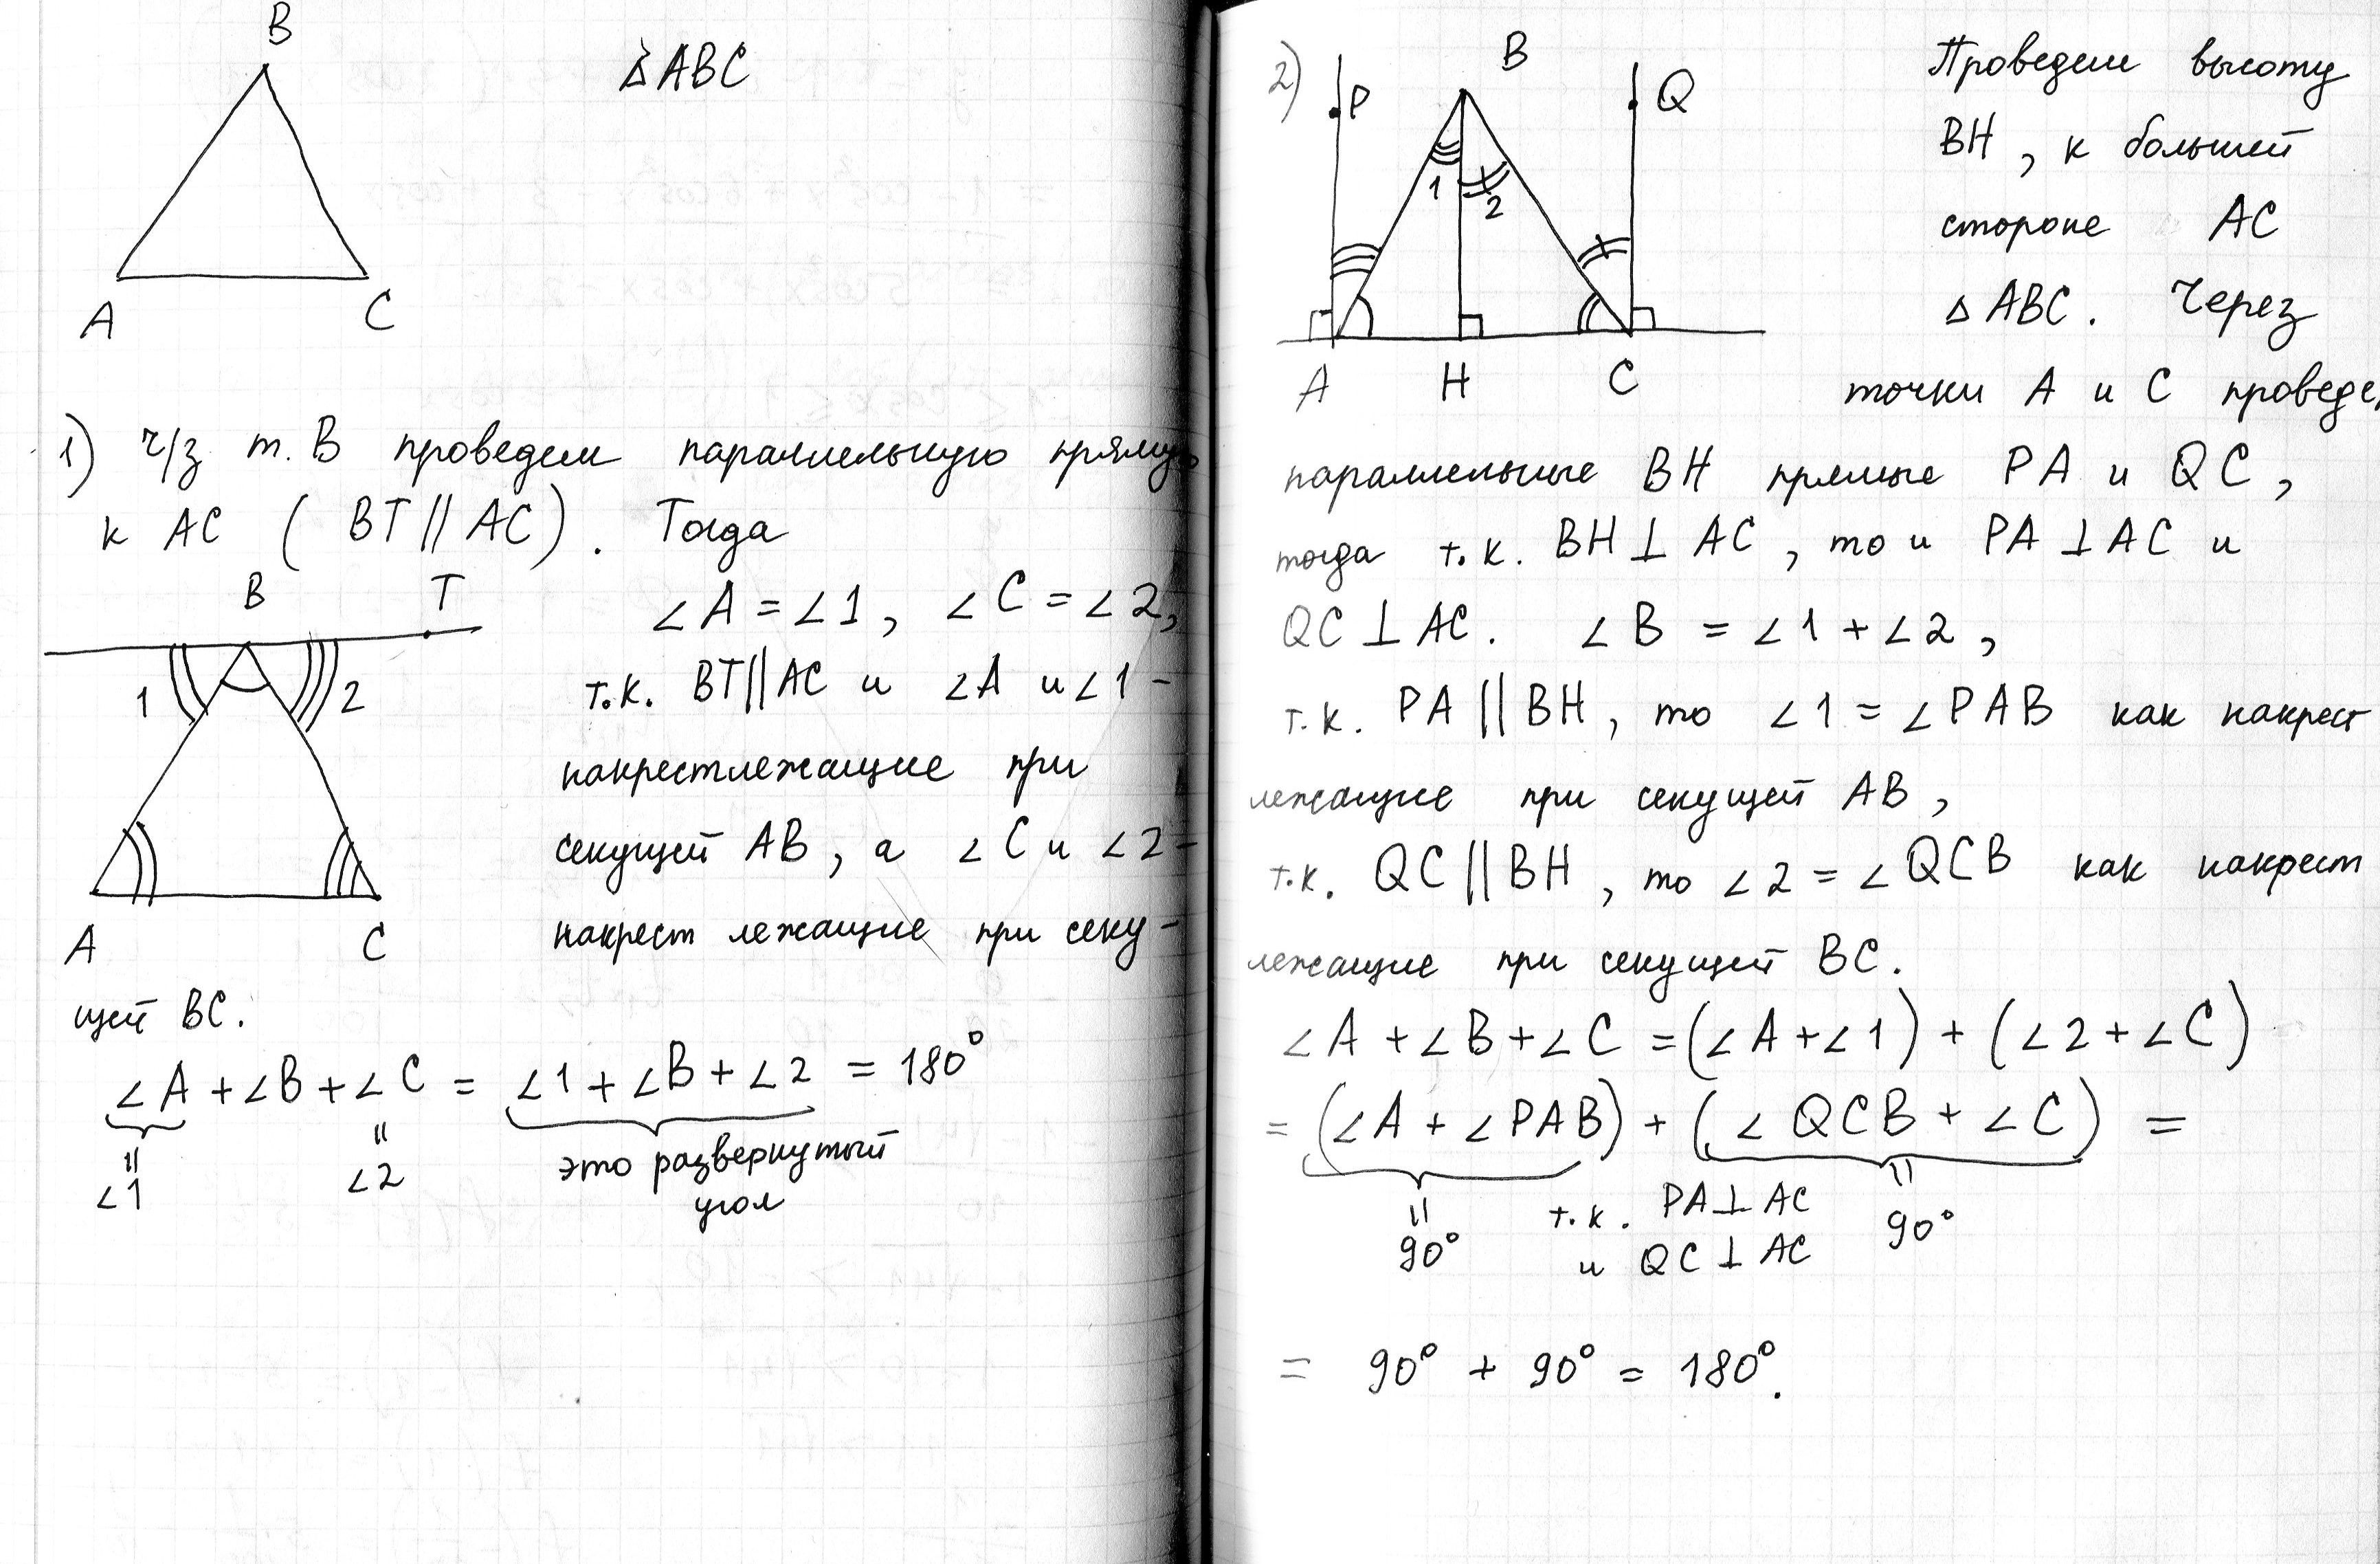 B
△ABC
A
C
1) ч/з т. B проведем параллельную прямую
к AC ( BT || AC ) . Тогда
B
T
∠A = ∠1 , ∠C = ∠2,
1
2
т.к. BT || AC и ∠A и ∠1 -
накрестлежащие при
секущей AB , а ∠C и ∠2 -
A
C
накрест лежащие при секу-
щей BC.
∠A + ∠B + ∠C = ∠1 + ∠B + ∠2 = 180°
=
∠1
=
∠2
это развернутый
угол
2)
P
B
Q
1
2
A
H
C
Проведем высоту
BH , к большей
стороне AC
△ABC. Через
точки A и C проведе
параллельные BH прямые PA и QC ,
тогда т.к. BH ⊥ AC , то и PA ⊥ AC и
QC ⊥ AC. ∠B = ∠1 + ∠2 ,
т.к. PA || BH , то ∠1 = ∠PAB как накрест
лежащие при секущей AB ,
т.к. QC || BH , то ∠2 = ∠QCB как накрест
лежащие при секущей BC.
∠A + ∠B + ∠C = (∠A + ∠1) + (∠2 + ∠C)
= (∠A + ∠PAB) + (∠QCB + ∠C) =
=
90°
т.к. PA ⊥ AC
и QC ⊥ AC
=
90°
= 90° + 90° = 180°.